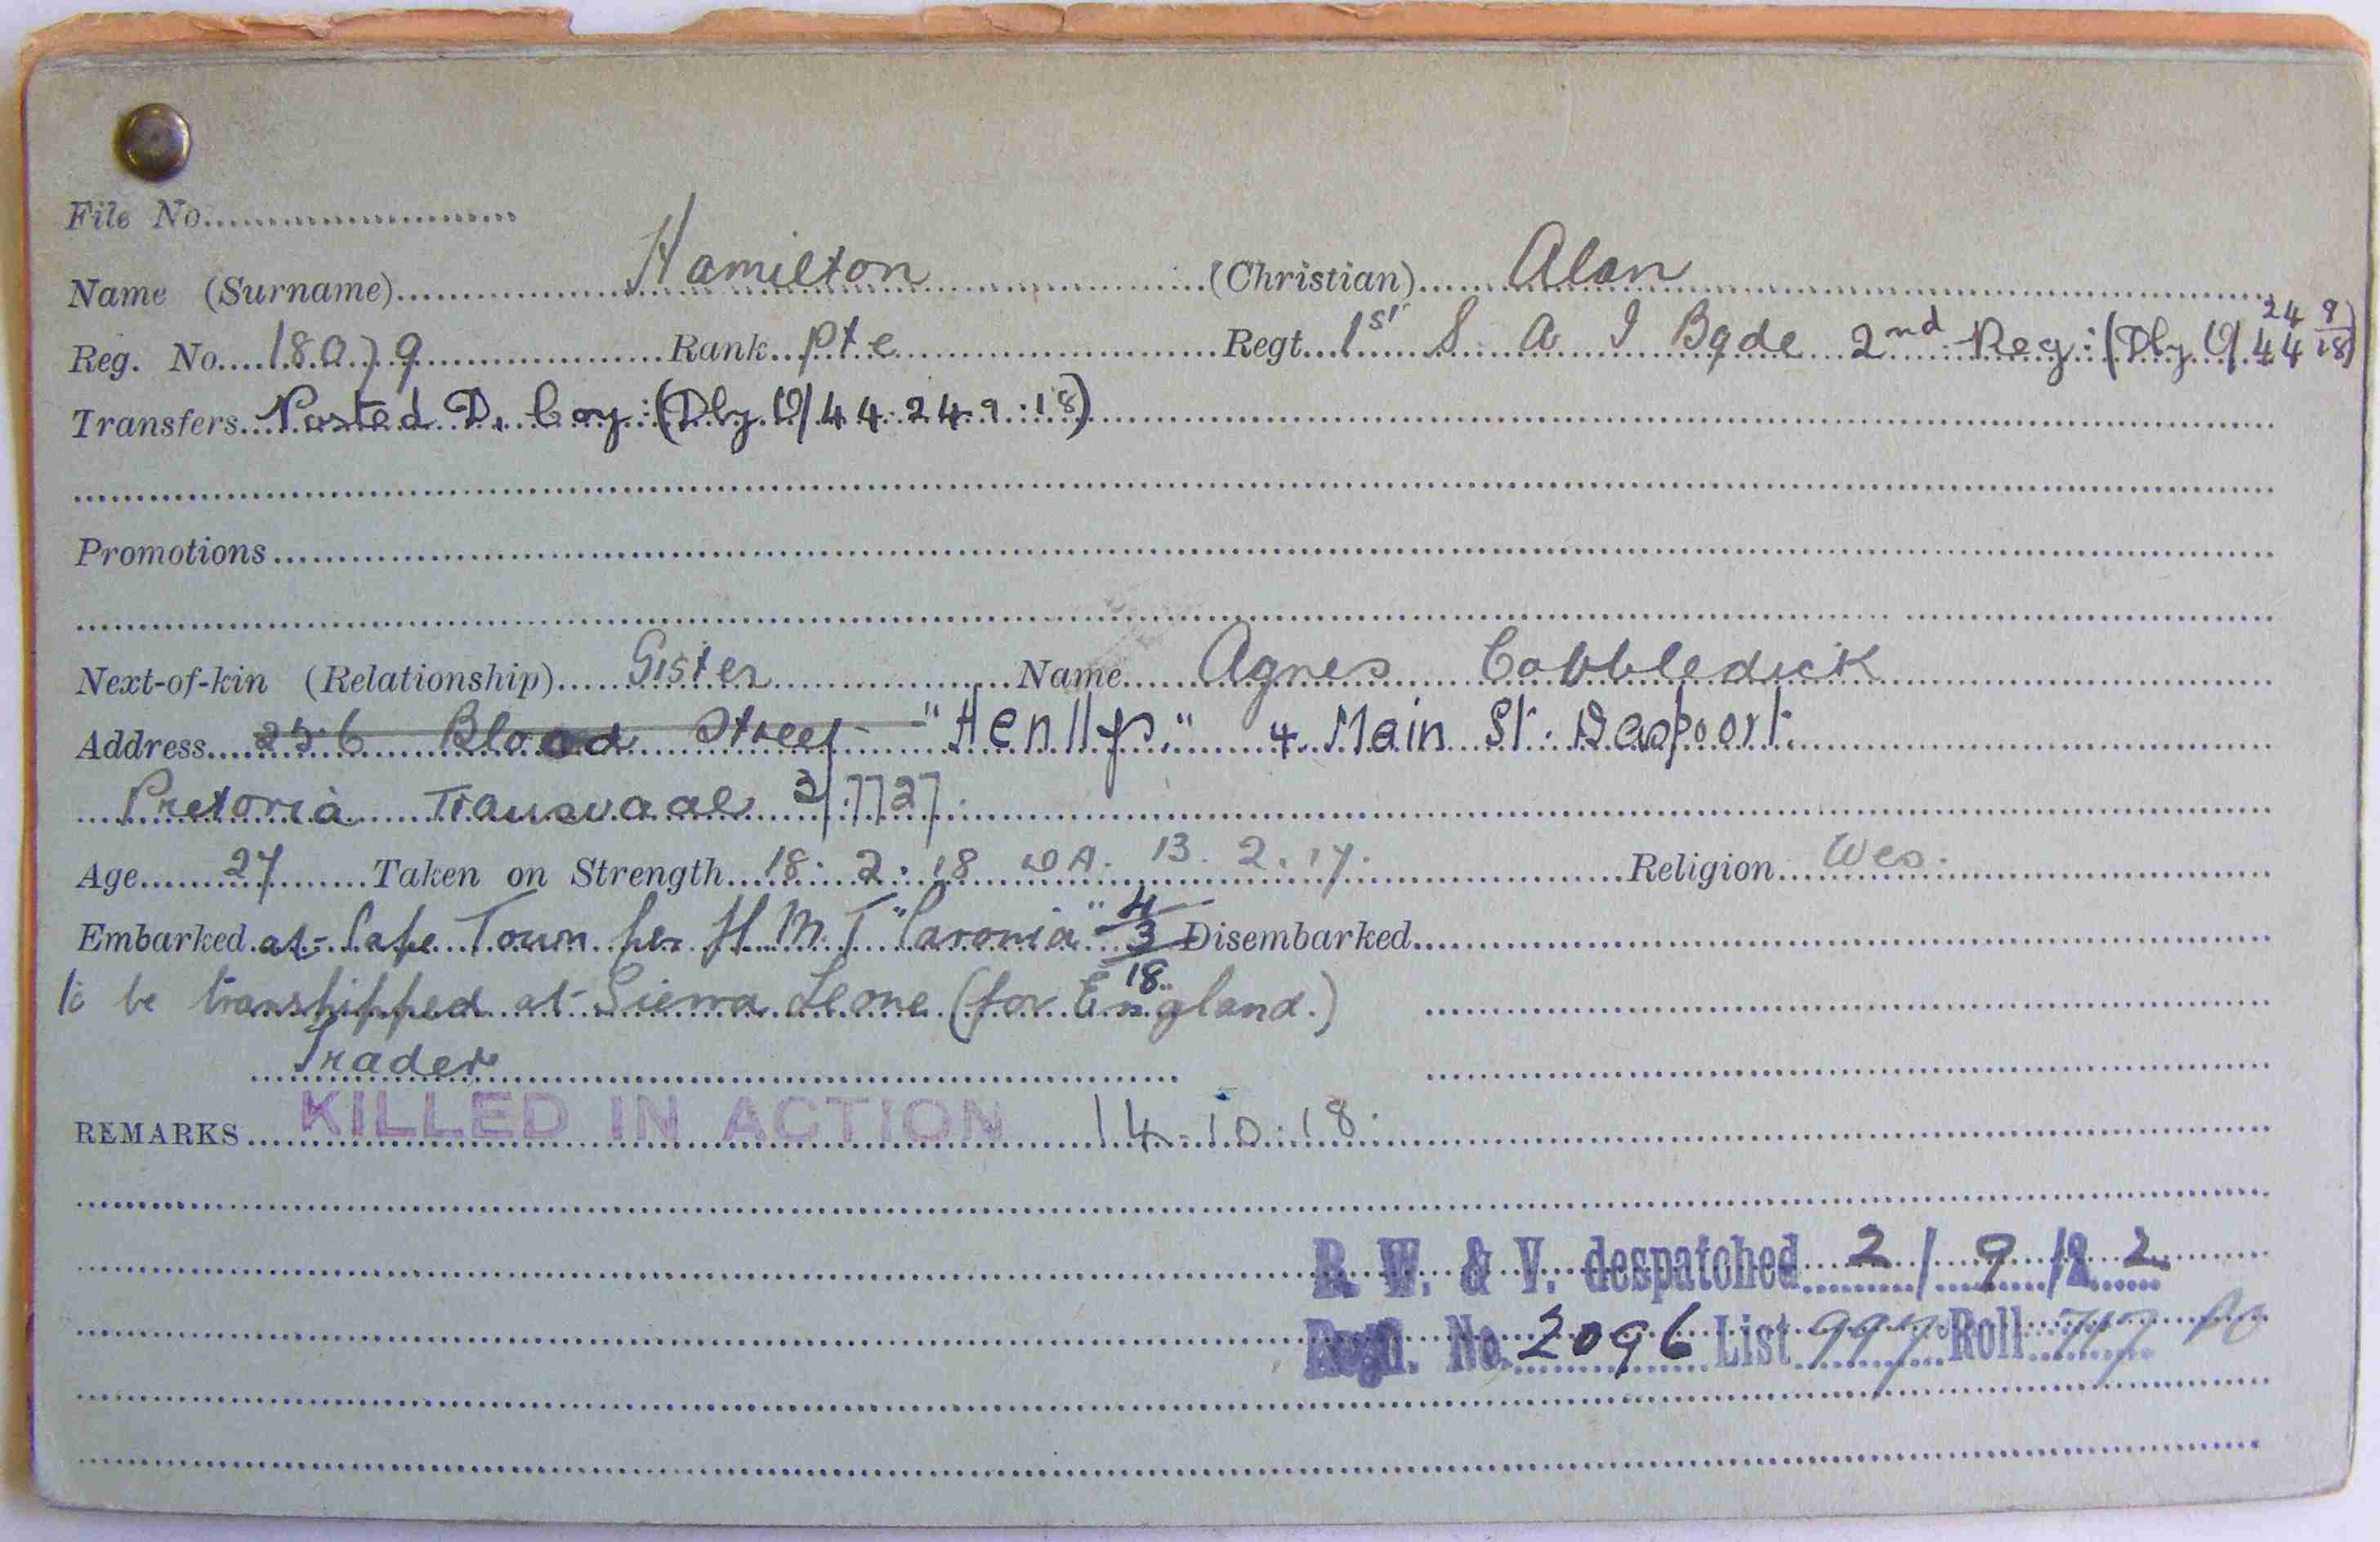 File No.
Name (Surname) Hamilton (Christian) Alan
Reg. No. 18079 Rank Pte Regt. 1st S A I Bgde 2nd Reg: (Dly O/44 24/9/18)
Transfers Posted D. Coy: (Dly O/44. 24.9.18)
Promotions
Next-of-kin (Relationship) Sister Name Agnes Cobbledick
Address 256 Blood Street "Henllys" 4 Main St. Daspoort
Pretoria Transvaal 3/7727.
Age 27 Taken on Strength 18.2.18 DA. 13.2.17. Religion Wes.
Embarked at Cape Town per H.M.T "Caronia" 4/3/18 Disembarked
to be transhipped at Sierra Leone (for England.)
Trader
REMARKS KILLED IN ACTION 14.10.18.
B. W. & V. despatched 2/9/22
Regd. No. 2096 List 997 Roll 717